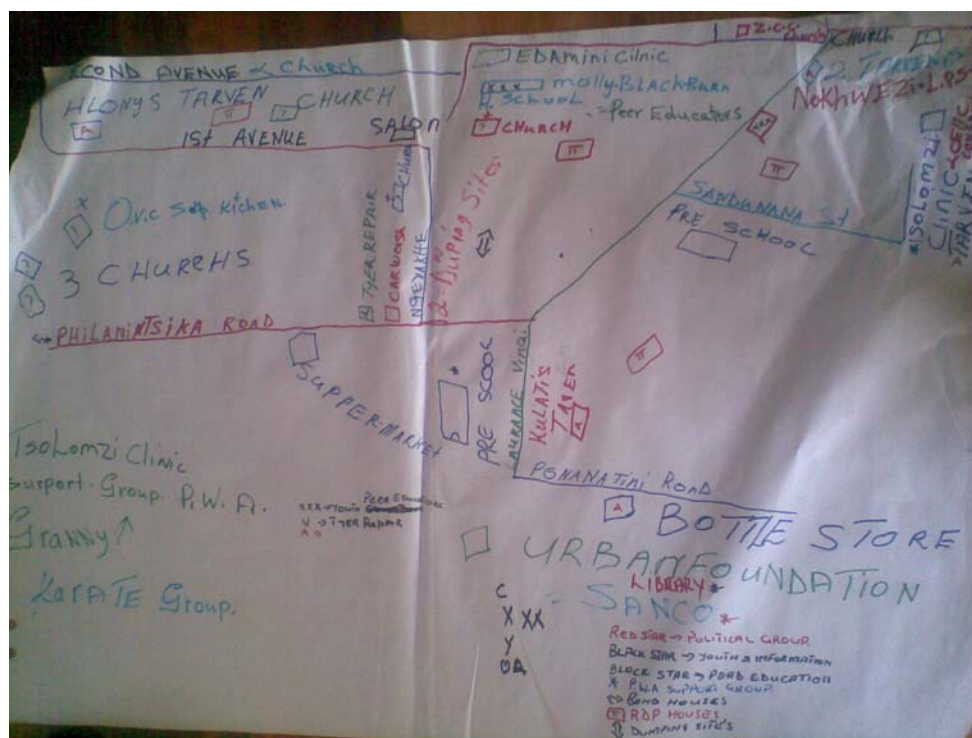 SECOND AVENUE & Church
HLONYS TARVEN
CHURCH
A
π
1St AVENUE
SALON
EDAmini Cilnic
xxx molly.BLACKBURN
SCHOOL
=Peer Educators
CHURCH
π
Z.C.C
CHURCH
2 TARVENS
NOKHWEZI L.P.S
xxx
π
SANDUNANA St
PRE SCHOOL
ISOLOMZI
CLiNiC
O.V.C Soup Kitchen
3 CHURCHS
TYER REPAIR
CARWASH
CHURCH
2-Dumping Sites
PHILANINTSIKA ROAD
SUPPER-MARKET
PRE SCOOL
KULATIS
A
π
PONANATINI ROAD
A
BOTTLE STORE
URBAN FOUNDATION
LIBRARY *
- SANCO *
TsoLomzi Clinic
Surport-Group. P.W.A.
Granny ↑
KaraTE Group.
Peer Educators
V → Tyer Repair
A →
C
X XX
Y
OA
RED STAR → POLITICAL GROUP
BLACK STAR → YOUTH & INFORMATION
BLACK STAR → ROAD EDUCATION
* P.W.A SUPPORT GROUP
⇔ BOND HOUSES
π RDP HOUSES
⇕ DUMPING SITE'S